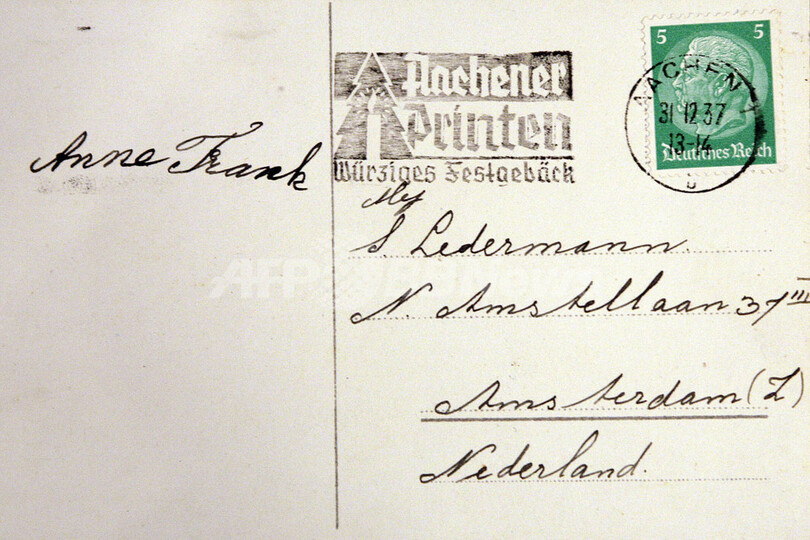 Anne Frank
Aachener
Printen
Würziges Festgebäck
5 5
AACHEN 1
31.12.37
13-14
Deutsches Reich
Mej
S. Ledermann.
N. Amstellaan 37 III
Amsterdam (Z)
Nederland.
AFP